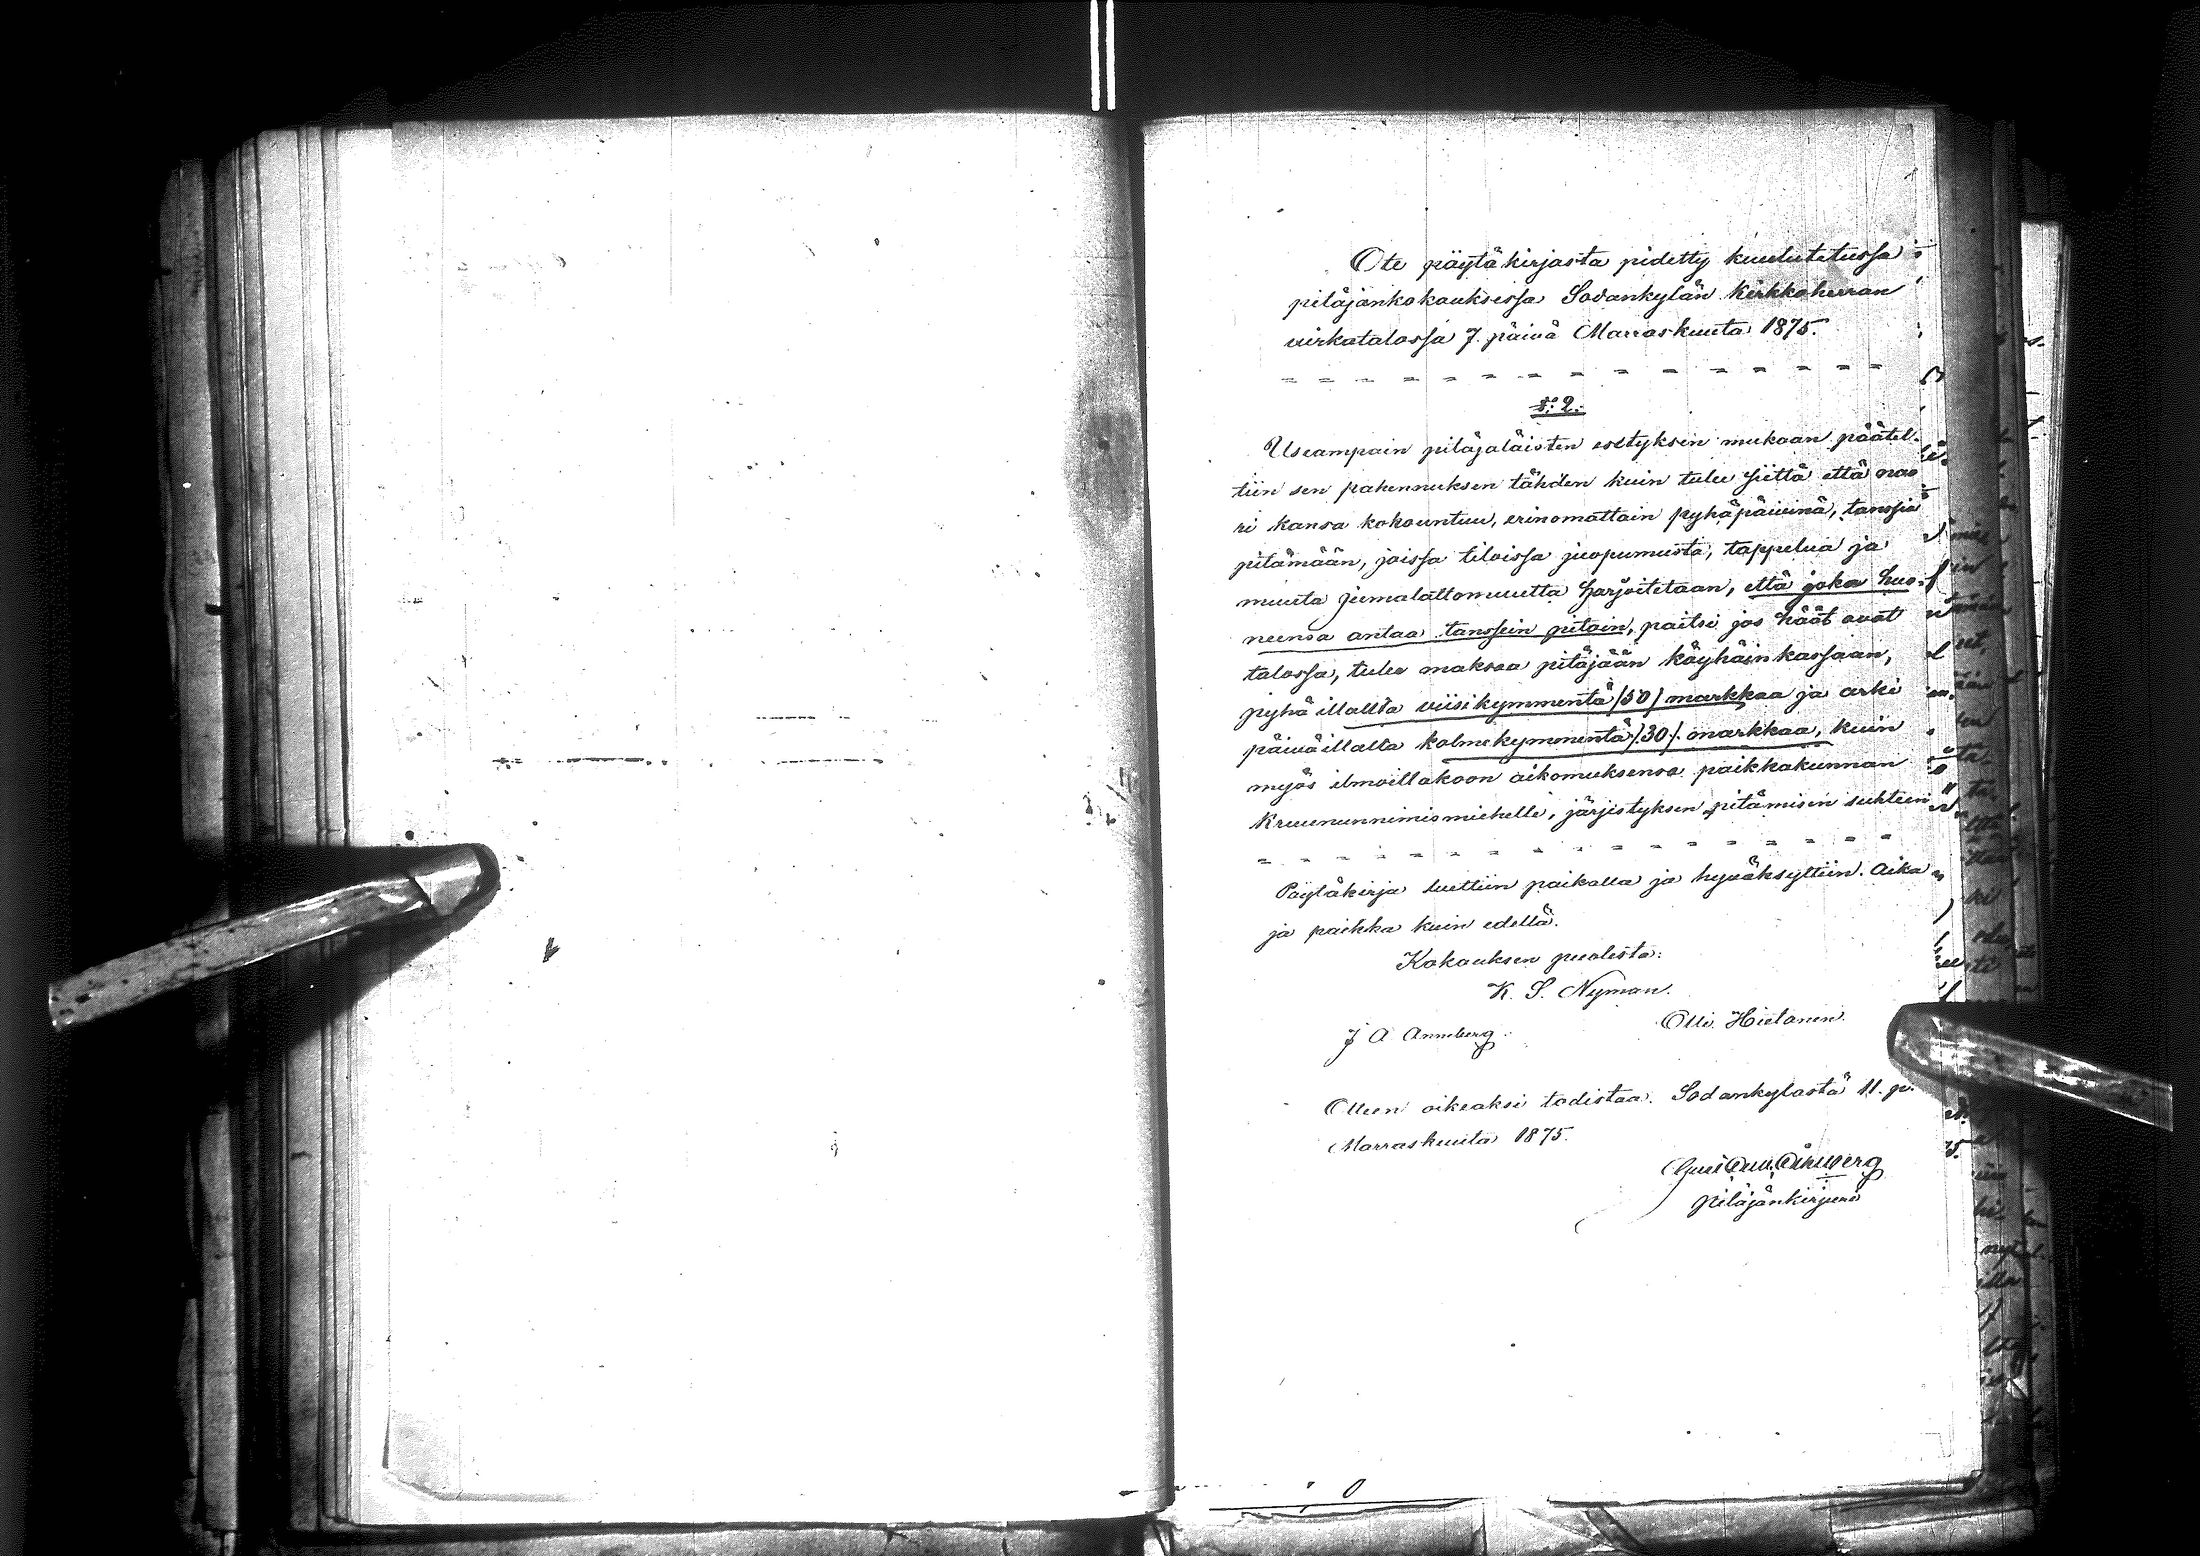 Ote pöytäkirjasta pidetty kuulutetussa
pitäjänkokouksessa Sodankylän kirkkoherran
virkatalossa 7. päivä Marraskuuta 1875.
§: 2.
Useampain pitäjäläisten esityksen mukaan päätet-
tiin sen pahennuksen tähden kuin tulee siittä että nuo
ri kansa kokountuu, erinomattain pyhäpäivinä, tanssia
pitämään, joissa tiloissa juopumusta, tappelua ja
muuta jumalattomuutta harjoitetaan, että joka huo-
neensa antaa tanssein pitoin, paitsi jos häät ovat
talossa, tulee maksaa pitäjään köyhäinkassaan,
pyhä illalta viisikymmentä /50/ markkaa ja arki
päivä illalta kolmekymmentä /30/. markkaa, kuin
myös ilmoittakoon aikomuksensa paikkakunnan
Kruununnimismiehelle, järjestyksen pitämisen suhteen
Pöytäkirja luettiin paikalla ja hyväksyttiin. Aika
ja paikka kuin edellä.
Kokouksen puolesta:
K. S. Nyman.
J A Annberg.
Olli Hietanen.
Otteen oikeaksi todistaa. Sodankylästä 11. p.
Marraskuuta 1875.
pitäjänkirjuri